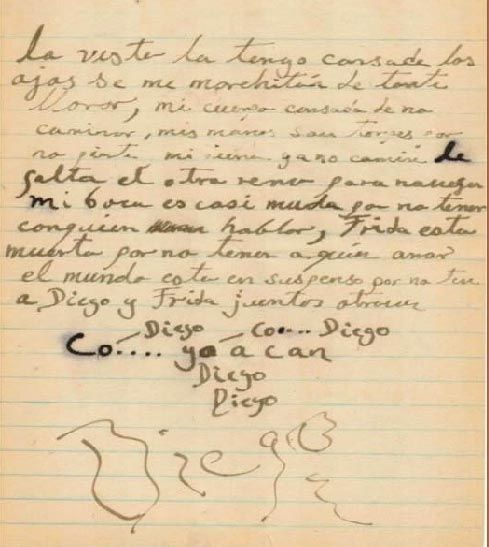 la vista la tengo cansada los
ojos se me marchitan de tanto
llorar, mi cuerpo cansado de no
caminar, mis manos son torpes por
no pintar mi ya no camina le
falta el otro remo para navegar
mi boca es casi muda por no tener
con quien hablar, Frida esta
muerta por no tener a quien amar
el mundo esta en suspenso por no ten
a Diego y Frida juntos
Diego Co.... Diego
Có.... yo á can
Diego
Diego
Diego